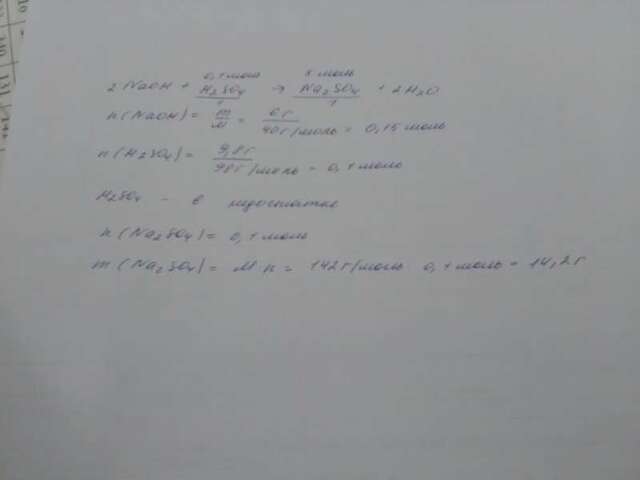 0,1 моль x моль
2 NaOH + H₂SO₄ → Na₂SO₄ + 2H₂O
1 1
n(NaOH) = m/M = 6г/40г/моль = 0,15 моль
n(H₂SO₄) = 9,8г/98г/моль = 0,1 моль
H₂SO₄ - в недостатке
n(Na₂SO₄) = 0,1 моль
m(Na₂SO₄) = M·n = 142г/моль 0,1 моль = 14,2г